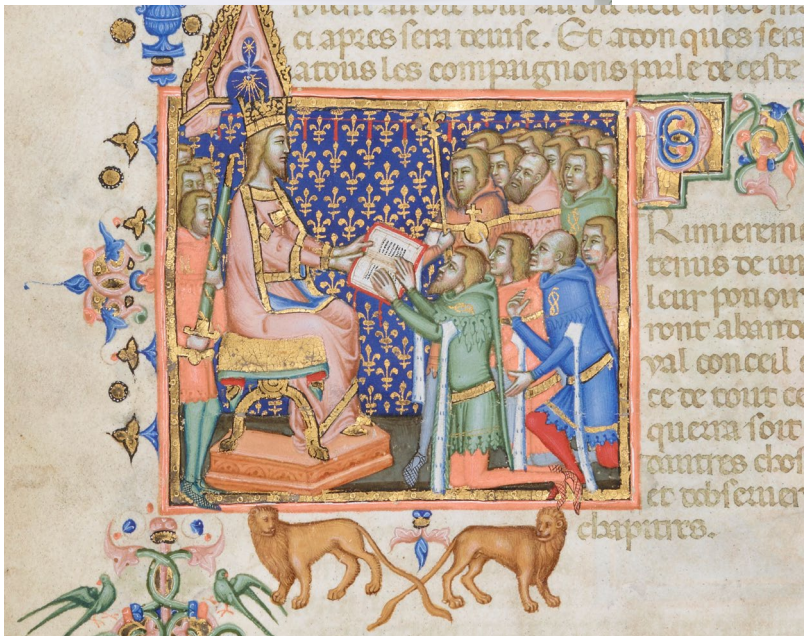 ci apres sera deuise. Et adonques sera
atous les compaignons par le de ceste
PRimiereme
tenus de un
leur pouoir
ront
yal conceil
ce de tout ce
querra soit
dautres chos
et dobseruer
chapitres.